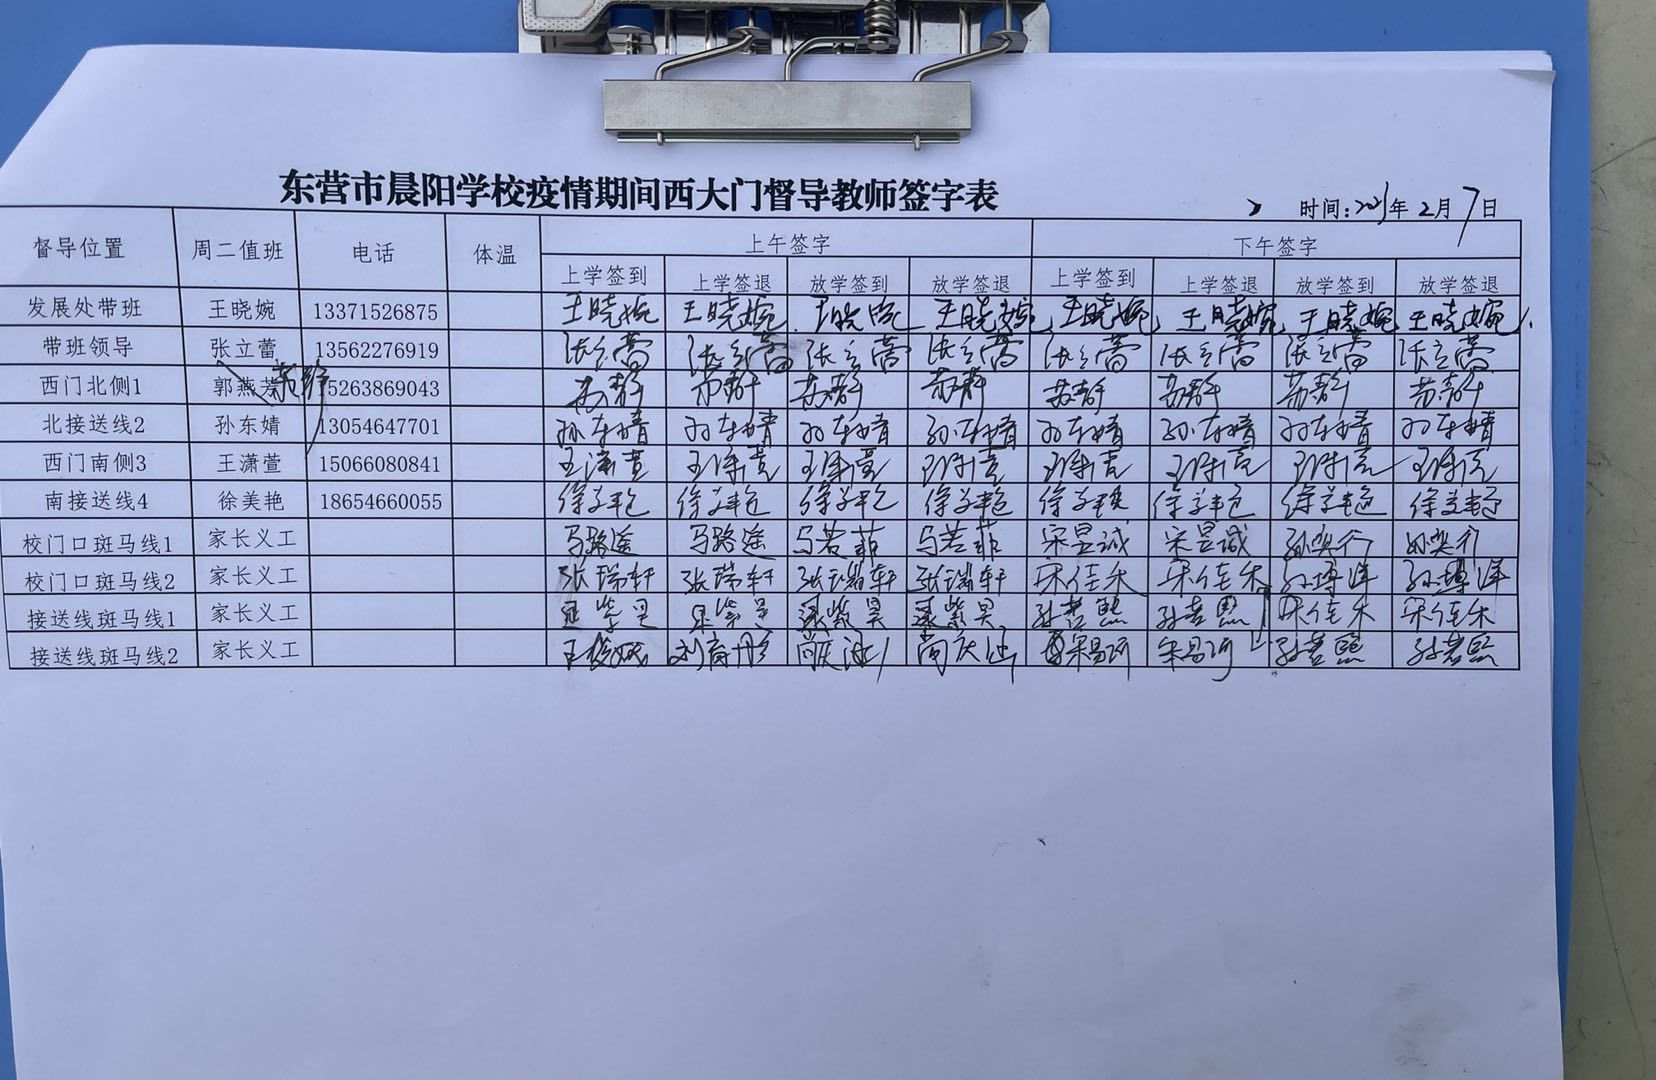 东营市晨阳学校疫情期间西大门督导教师签字表
时间: 年 2 月 7 日
督导位置 周二值班 电话 体温 上午签字 下午签字
上学签到 上学签退 放学签到 放学签退 上学签到 上学签退 放学签到 放学签退
发展处带班 王晓婉 13371526875 王晓婉 王晓婉 王晓婉 王晓婉 王晓婉 王晓婉 王晓婉 王晓婉
带班领导 张立蕾 13562276919 张立蕾 张立蕾 张立蕾 张立蕾 张立蕾 张立蕾 张立蕾 张立蕾
西门北侧1 郭燕芳 苏静 15263869043 苏静 苏静 苏静 苏静 苏静 苏静 苏静 苏静
北接送线2 孙东婧 13054647701 孙东婧 孙东婧 孙东婧 孙东婧 孙东婧 孙东婧 孙东婧 孙东婧
西门南侧3 王潇萱 15066080841 王潇萱 王潇萱 王潇萱 王潇萱 王潇萱 王潇萱 王潇萱 王潇萱
南接送线4 徐美艳 18654660055 徐美艳 徐美艳 徐美艳 徐美艳 徐美艳 徐美艳 徐美艳 徐美艳
校门口斑马线1 家长义工 马路遥 马路遥 马若菲 马若菲 宋昱诚 宋昱诚 孙奕行 孙奕行
校门口斑马线2 家长义工 张瑞轩 张瑞轩 张瑞轩 张瑞轩 宋佳禾 宋佳禾 孙博洋 孙博洋
接送线斑马线1 家长义工 孙若熙 孙若熙 宋佳禾 宋佳禾
接送线斑马线2 家长义工 宋易珂 宋易珂 孙若熙 孙若熙